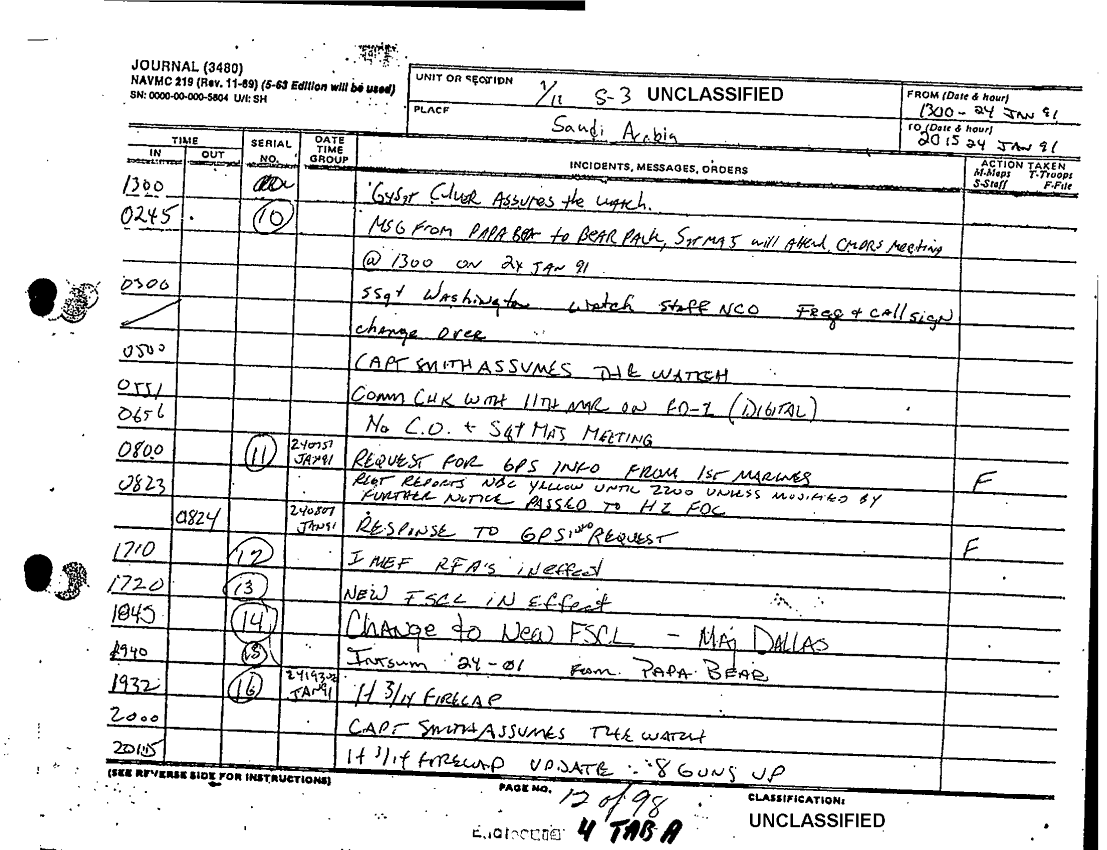 JOURNAL (3480)
NAVMC 219 (Rev. 11-69) (5-63 Edition will be used)
SN: 0000-00-000-5804 U/I: SH
UNIT OR SECTION 1/11 S-3 UNCLASSIFIED
PLACE Saudi Arabia
FROM (Date & hour)
1300 - 24 JAN 91
TO (Date & hour)
2015 24 JAN 91
TIME IN OUT SERIAL NO. DATE TIME GROUP INCIDENTS, MESSAGES, ORDERS ACTION TAKEN M-Maps T-Troops S-Staff F-File
1300 GySgt Assumes the watch.
0245 10 MSG From PAPA BEAR to BEAR PACK, SGT MAJ will Attend CMDRS Meeting
@ 1300 ON 24 JAN 91
0300 SSgt Washington watch staff NCO Freq + call sign
change over
0500 CAPT SMITH ASSUMES THE WATCH
0551 COMM CHK WITH 11TH MAR ON FD-1 (DIGITAL)
0656 No C.O. + SGT MAJ MEETING
0800 11 240751 JAN 91 REQUEST FOR GPS INFO FROM 1ST MARINES F
0823 REGT REPORTS NBC YELLOW UNTIL 2200 UNLESS MODIFIED BY
FURTHER NOTICE PASSED TO H2 FDC
0824 240807 JAN 91 RESPONSE TO GPS INFO REQUEST F
1710 12 I MEF RFA'S in effect
1720 13 NEW FSCL iN Effect
1845 14 Change to New FSCL - MAJ DALLAS
1940 15 Intsum 24-01 from PAPA BEAR
1932 16 JAN 91 H 3/14 FIRECAP
2000 CAPT SMITH ASSUMES THE WATCH
2015 H 3/14 FIRECAP UPDATE 8 GUNS UP
(SEE REVERSE SIDE FOR INSTRUCTIONS)
PAGE NO. 12 of 98
CLASSIFICATION:
UNCLASSIFIED
4 TAB A